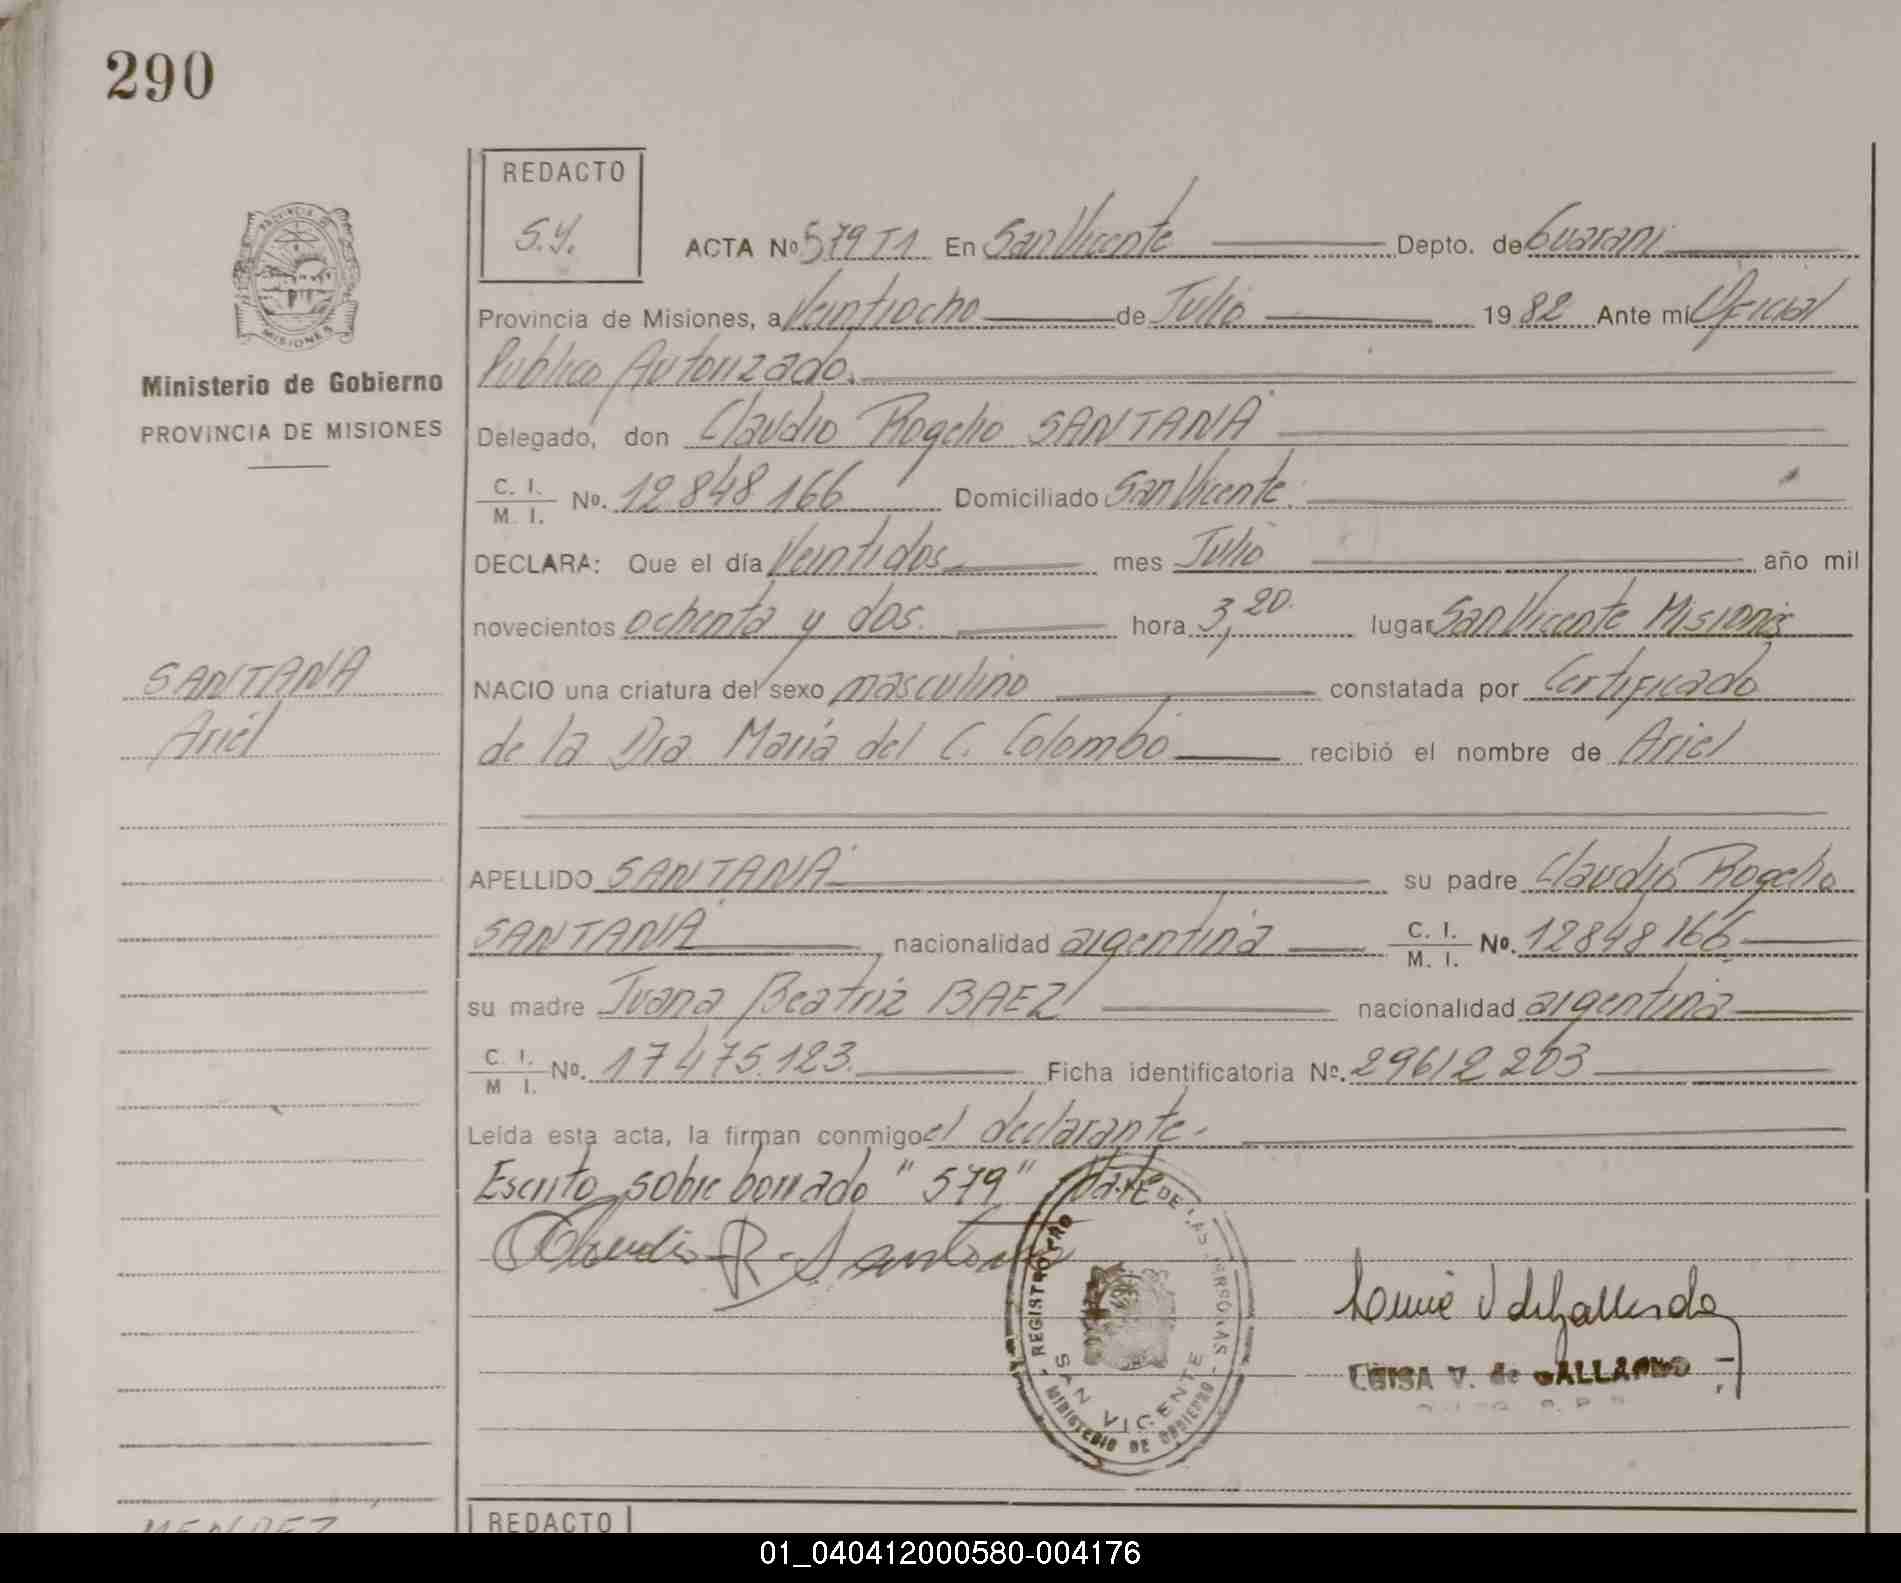 290
REDACTO
S.Y.
ACTA Nº 579 T1 En San Vicente Depto. de Guaraní
Provincia de Misiones, a Veintiocho de Julio 1982 Ante mí Oficial
Público Autorizado.
Delegado, don Claudio Rogelio SANTANA
C. I. / M. I. Nº. 12848166 Domiciliado San Vicente.
DECLARA: Que el día Veintidos mes Julio año mil
novecientos ochenta y dos. hora 3,20. lugar San Vicente Misiones
NACIO una criatura del sexo masculino constatada por Certificado
de la Dra. María del C. Colombo recibió el nombre de Ariel
APELLIDO SANTANA su padre Claudio Rogelio
SANTANA nacionalidad argentina C. I. / M. I. Nº. 12848166
su madre Juana Beatriz BAEZ nacionalidad argentina
C. I. / M. I. Nº. 17475.123. Ficha identificatoria Nº. 29612203
Leída esta acta, la firman conmigo el declarante.
Escrito sobre borrado "579" Vale
Claudio R. Santana
LUISA V. de GALLARDO
REGISTRO DE LAS PERSONAS
SAN VICENTE
MINISTERIO DE GOBIERNO
PROVINCIA DE
MISIONES
Ministerio de Gobierno
PROVINCIA DE MISIONES
SANTANA
Ariel
MENDEZ
REDACTO
01_040412000580-004176